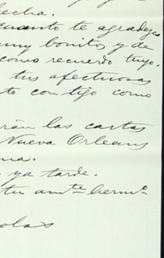 fecha.
cuanto te agradezco
muy bonitos y de
como recuerdo tuyo.
tus afectuosas
contigo como
las cartas
Nueva Orleans
ya tarde.
tu amte herm